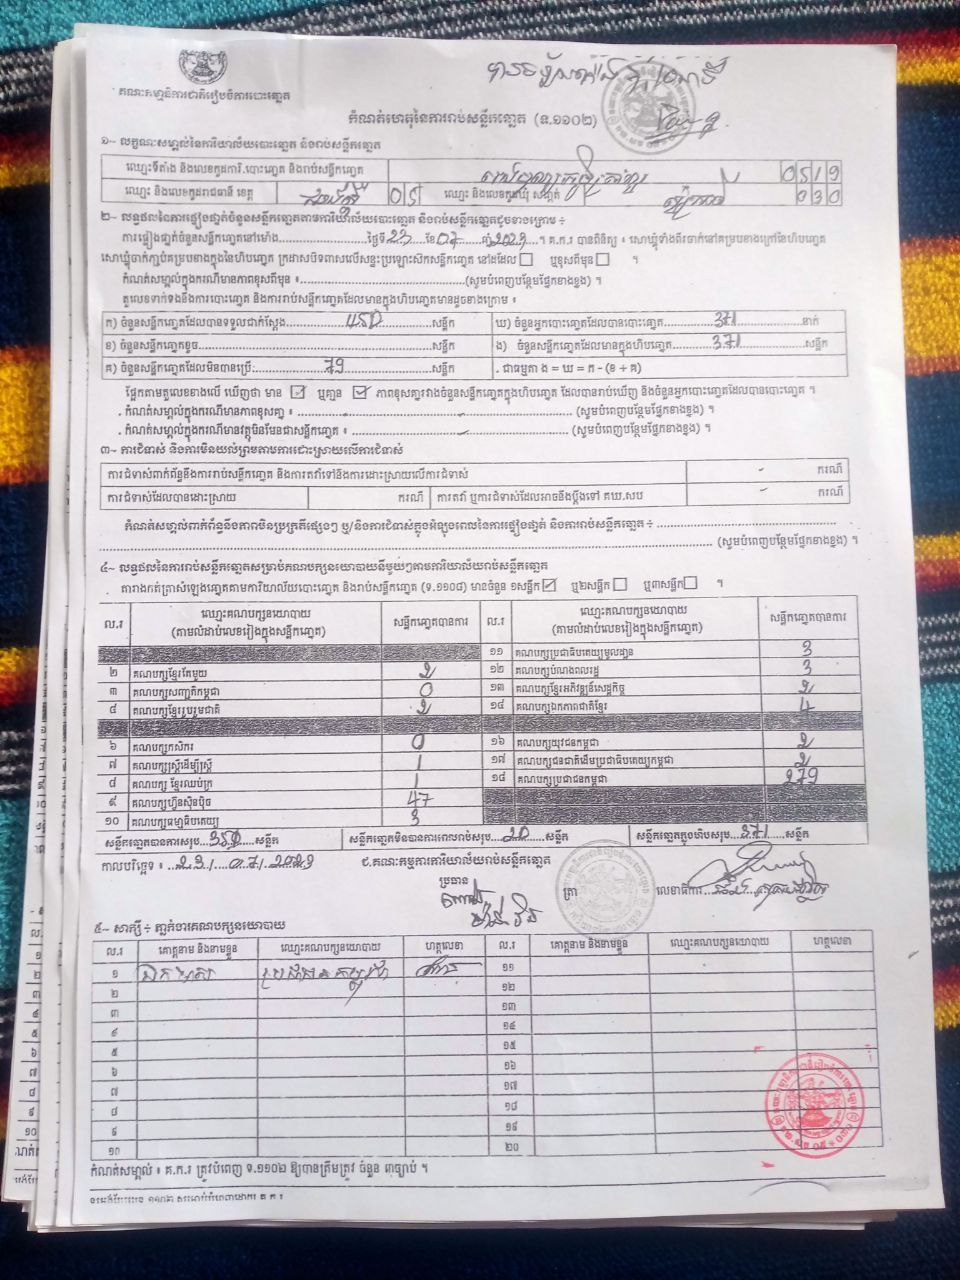 គណៈកម្មាធិការជាតិរៀបចំការបោះឆ្នោត
កំណត់ហេតុនៃការរាប់សន្លឹកឆ្នោត (ទ.១១០២)
១~ លក្ខណៈសម្គាល់នៃការិយាល័យបោះឆ្នោត និងរាប់សន្លឹកឆ្នោត
ឈ្មោះទីតាំង និងលេខកូដការិ.បោះឆ្នោត និងរាប់សន្លឹកឆ្នោត 0519
ឈ្មោះ និងលេខកូដរាជធានី ខេត្ត 05 ឈ្មោះ និងលេខកូដឃុំ សង្កាត់ 030
២~ លទ្ធផលនៃការផ្ទៀងផ្ទាត់ចំនួនសន្លឹកឆ្នោតតាមការិយាល័យបោះឆ្នោត និងរាប់សន្លឹកឆ្នោតដូចខាងក្រោម ៖
ការផ្ទៀងផ្ទាត់ចំនួនសន្លឹកឆ្នោតនៅម៉ោង............ថ្ងៃទី 23 ខែ 07 ឆ្នាំ 2023 ។ គ.ក.រ បានពិនិត្យ ៖ សោឃ្លុំទាំងពីរចាក់នៅគម្របខាងក្រៅនៃហិបឆ្នោត
សោឃ្លុំចាក់ភ្ជាប់គម្របខាងក្នុងនៃហិបឆ្នោត ក្រដាសបិទពាសលើសន្ទះប្រឡោះស៊កសន្លឹកឆ្នោត នៅដដែល ឬខុសពីមុន ។
កំណត់សម្គាល់ក្នុងករណីមានភាពខុសពីមុន ៖............(សូមបំពេញបន្ថែមផ្នែកខាងខ្នង) ។
តួលេខទាក់ទងនឹងការបោះឆ្នោត និងការរាប់សន្លឹកឆ្នោតដែលមានក្នុងហិបឆ្នោតមានដូចខាងក្រោម ៖
ក) ចំនួនសន្លឹកឆ្នោតដែលបានទទួលជាក់ស្តែង 450 សន្លឹក ឃ) ចំនួនអ្នកបោះឆ្នោតដែលបានបោះឆ្នោត 371 នាក់
ខ) ចំនួនសន្លឹកឆ្នោតខូច............សន្លឹក ង) ចំនួនសន្លឹកឆ្នោតដែលមានក្នុងហិបឆ្នោត 371 សន្លឹក
គ) ចំនួនសន្លឹកឆ្នោតដែលមិនបានប្រើ: 79 សន្លឹក . ជាធម្មតា ង = ឃ = ក - (ខ + គ)
ផ្អែកតាមតួលេខខាងលើ ឃើញថា មាន ឬគ្មាន ភាពខុសគ្នារវាងចំនួនសន្លឹកឆ្នោតក្នុងហិបឆ្នោត ដែលបានរាប់ឃើញ និងចំនួនអ្នកបោះឆ្នោតដែលបានបោះឆ្នោត ។
. កំណត់សម្គាល់ក្នុងករណីមានភាពខុសគ្នា ៖............(សូមបំពេញបន្ថែមផ្នែកខាងខ្នង) ។
. កំណត់សម្គាល់ក្នុងករណីមានវត្ថុមិនមែនជាសន្លឹកឆ្នោត ៖............(សូមបំពេញបន្ថែមផ្នែកខាងខ្នង) ។
៣~ ការជំទាស់ និងការមិនយល់ព្រមតាមការដោះស្រាយលើការជំទាស់
ការជំទាស់ពាក់ព័ន្ធនឹងការរាប់សន្លឹកឆ្នោត និងការតវ៉ាទៅនឹងការដោះស្រាយលើការជំទាស់ - ករណី
ការជំទាស់ដែលបានដោះស្រាយ ករណី ការតវ៉ា ឬការជំទាស់ដែលអាចនឹងប្តឹងទៅ គឃ.សប - ករណី
កំណត់សម្គាល់ពាក់ព័ន្ធនឹងភាពមិនប្រក្រតីផ្សេងៗ ឬ/និងការជំទាស់ក្នុងអំឡុងពេលនៃការផ្ទៀងផ្ទាត់ និងការរាប់សន្លឹកឆ្នោត ៖............
............(សូមបំពេញបន្ថែមផ្នែកខាងខ្នង) ។
៤~ លទ្ធផលនៃការរាប់សន្លឹកឆ្នោតសម្រាប់គណបក្សនយោបាយនីមួយៗតាមការិយាល័យរាប់សន្លឹកឆ្នោត
តារាងកត់ត្រាសំឡេងឆ្នោតតាមការិយាល័យបោះឆ្នោត និងរាប់សន្លឹកឆ្នោត (ទ.១១០៨) មានចំនួន ១សន្លឹក ឬ២សន្លឹក ឬ៣សន្លឹក ។
ល.រ ឈ្មោះគណបក្សនយោបាយ (តាមលំដាប់លេខរៀងក្នុងសន្លឹកឆ្នោត) សន្លឹកឆ្នោតបានការ ល.រ ឈ្មោះគណបក្សនយោបាយ (តាមលំដាប់លេខរៀងក្នុងសន្លឹកឆ្នោត) សន្លឹកឆ្នោតបានការ
១១ គណបក្សប្រជាធិបតេយ្យមូលដ្ឋាន 3
២ គណបក្សខ្មែរតែមួយ 2 ១២ គណបក្សបំណងពលរដ្ឋ 3
៣ គណបក្សសញ្ជាតិកម្ពុជា 0 ១៣ គណបក្សខ្មែរអភិវឌ្ឍន៍សេដ្ឋកិច្ច 2
៤ គណបក្សខ្មែររួបរួមជាតិ 2 ១៤ គណបក្សឯកភាពជាតិខ្មែរ 4
៦ គណបក្សកសិករ 0 ១៦ គណបក្សយុវជនកម្ពុជា 2
៧ គណបក្សស្ត្រីដើម្បីស្ត្រី 1 ១៧ គណបក្សជនជាតិដើមប្រជាធិបតេយ្យកម្ពុជា 2
៨ គណបក្ស ខ្មែរឈប់ក្រ 1 ១៨ គណបក្សប្រជាជនកម្ពុជា 279
៩ គណបក្សហ៊្វុនស៊ិនប៉ិច 47
១០ គណបក្សធម្មាធិបតេយ្យ 3
សន្លឹកឆ្នោតបានការសរុប 351 សន្លឹក សន្លឹកឆ្នោតមិនបានការពេលរាប់សរុប 20 សន្លឹក សន្លឹកឆ្នោតក្នុងហិបសរុប 371 សន្លឹក
កាលបរិច្ឆេទ ៖ 23/07/2023 ជ.គណៈកម្មការការិយាល័យរាប់សន្លឹកឆ្នោត
ប្រធាន ត្រា លេខាធិការ
៥~ សាក្សី ៖ ភ្នាក់ងារគណបក្សនយោបាយ
ល.រ គោត្តនាម និងនាមខ្លួន ឈ្មោះគណបក្សនយោបាយ ហត្ថលេខា ល.រ គោត្តនាម និងនាមខ្លួន ឈ្មោះគណបក្សនយោបាយ ហត្ថលេខា
១ ប្រជាជនកម្ពុជា ១១
២ ១២
៣ ១៣
៤ ១៤
៥ ១៥
៦ ១៦
៧ ១៧
៨ ១៨
៩ ១៩
១០ ២០
កំណត់សម្គាល់ ៖ គ.ក.រ ត្រូវបំពេញ ទ.១១០២ ឱ្យបានត្រឹមត្រូវ ចំនួន ៣ច្បាប់ ។